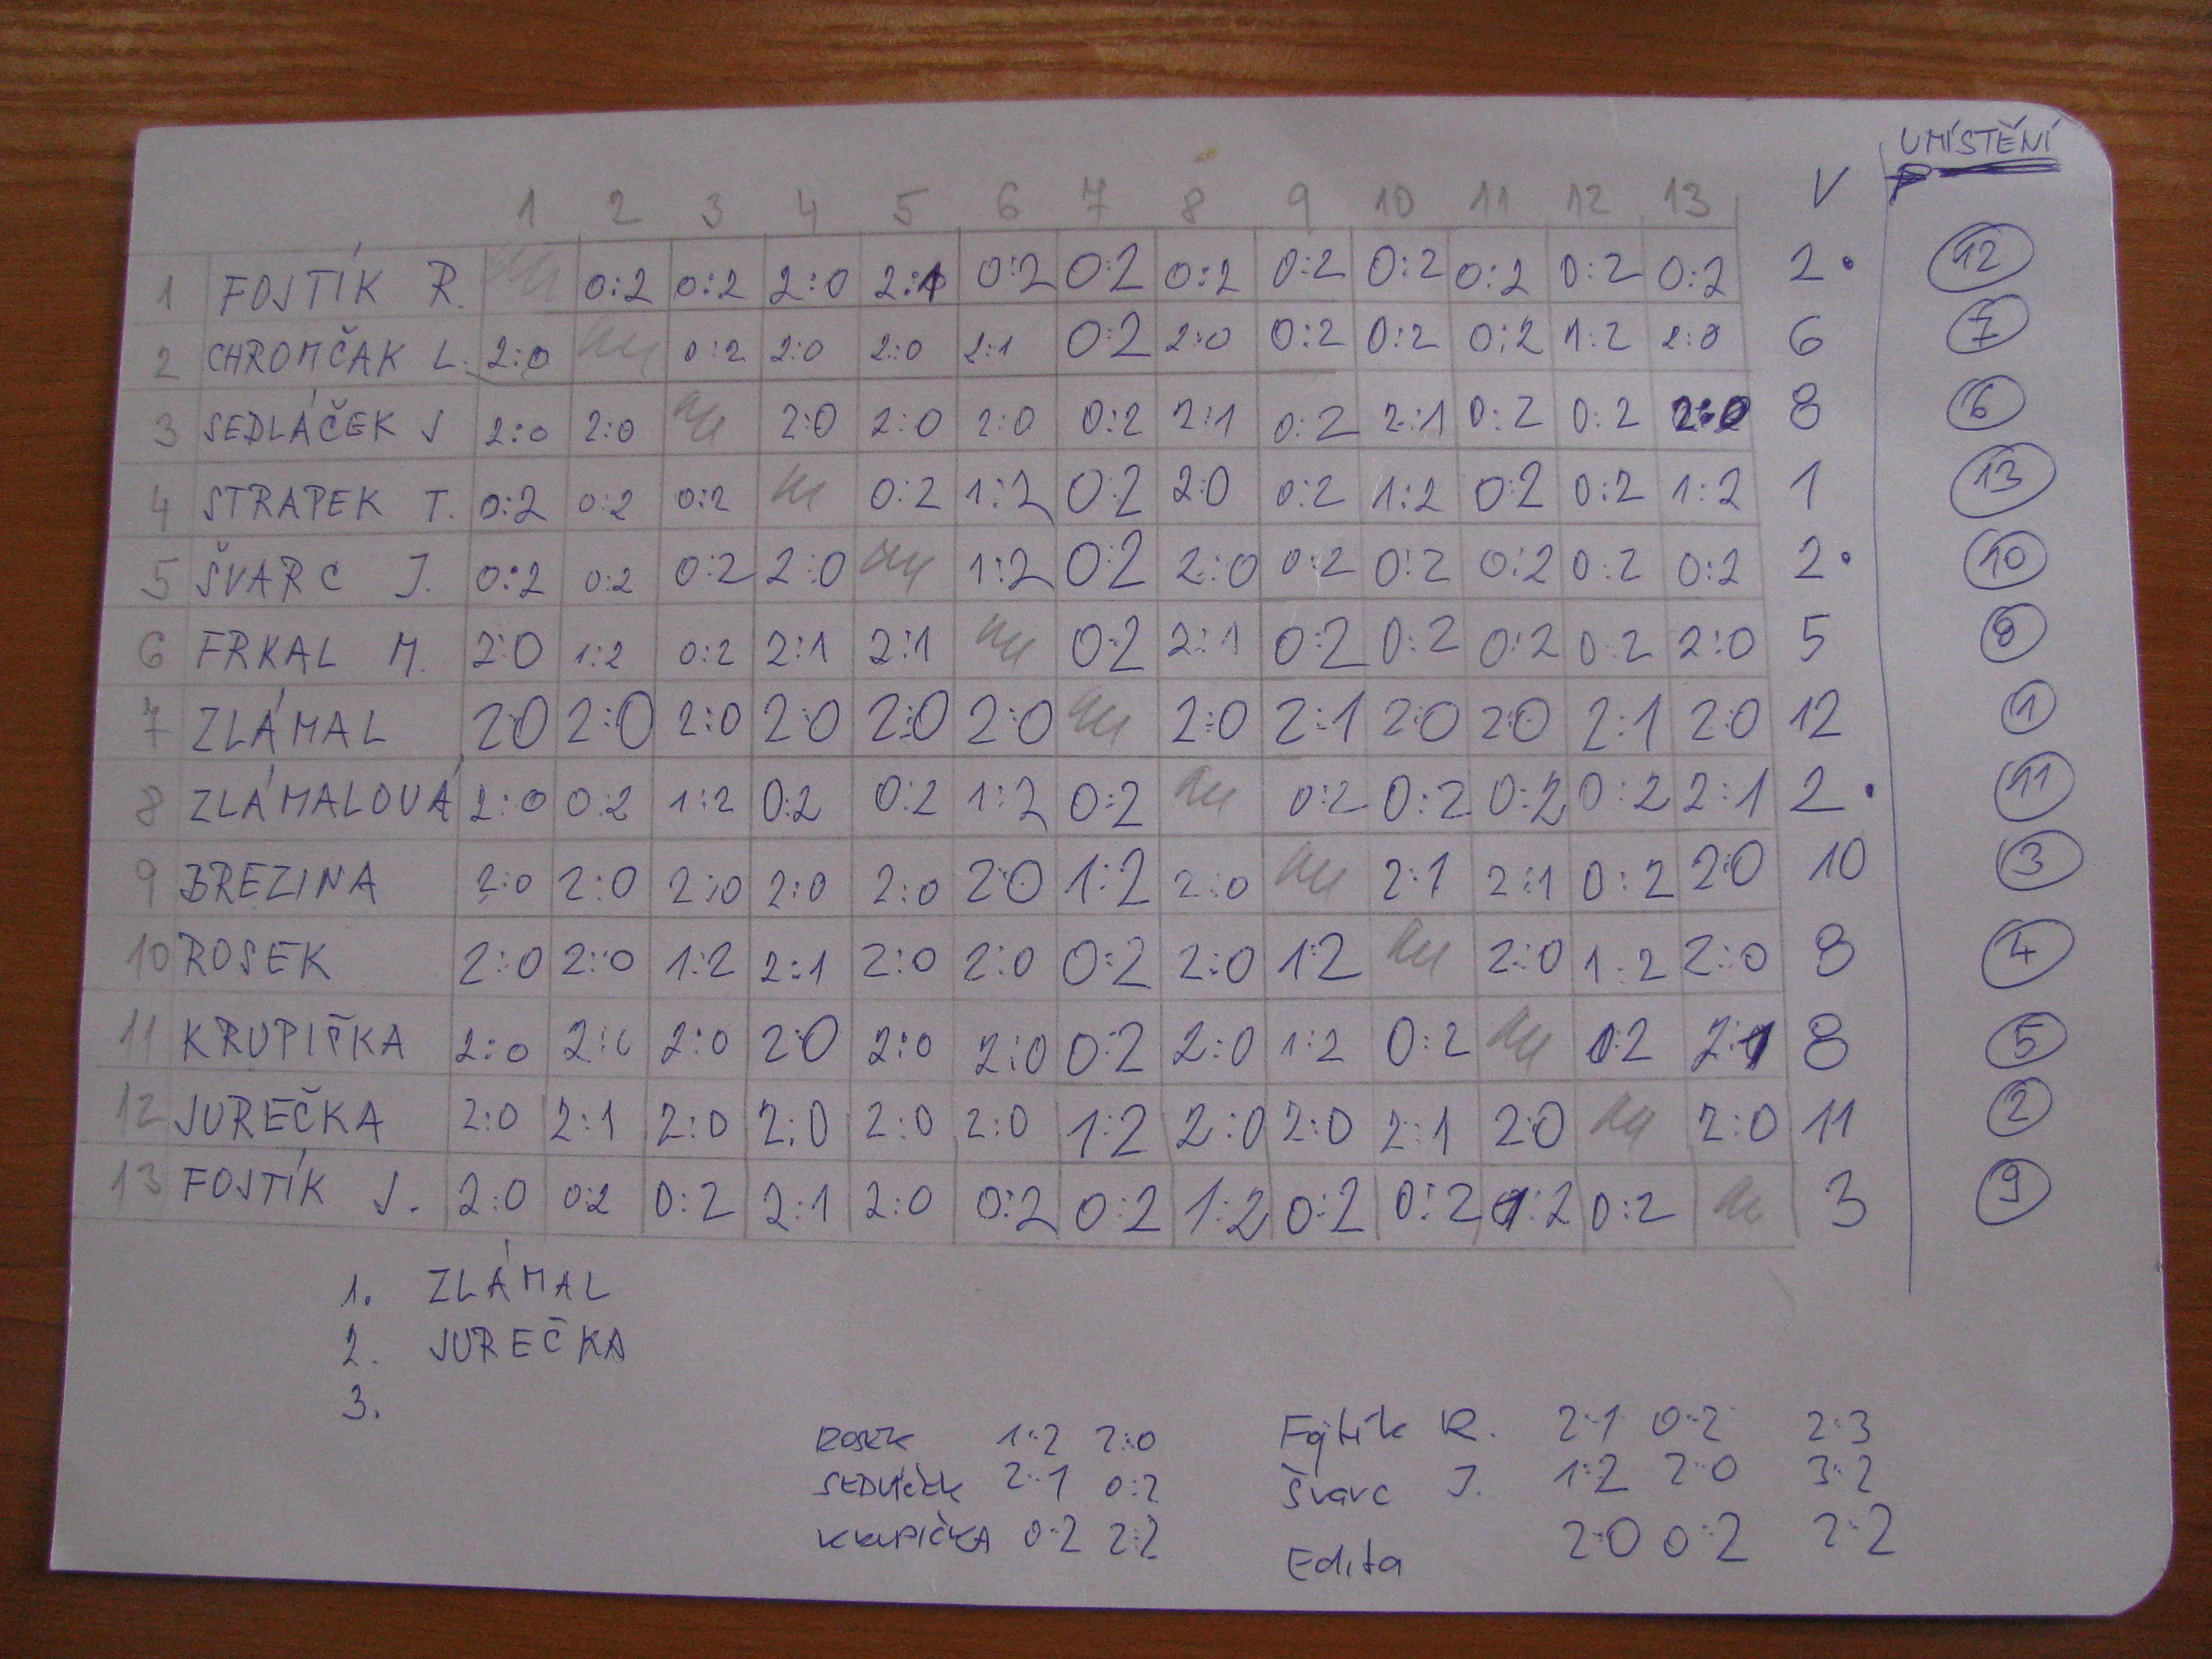 UMÍSTĚNÍ
1 2 3 4 5 6 7 8 9 10 11 12 13 V
1 FOJTÍK R. 0:2 0:2 2:0 2:1 0:2 0:2 0:2 0:2 0:2 0:2 0:2 0:2 2• 12
2 CHROMČAK L. 2:0 0:2 2:0 2:0 2:1 0:2 2:0 0:2 0:2 0:2 1:2 2:0 6 7
3 SEDLÁČEK J 2:0 2:0 2:0 2:0 2:0 0:2 2:1 0:2 2:1 0:2 0:2 2:0 8 6
4 STRAPEK T. 0:2 0:2 0:2 0:2 1:2 0:2 2:0 0:2 1:2 0:2 0:2 1:2 1 13
5 ŠVARC J. 0:2 0:2 0:2 2:0 1:2 0:2 2:0 0:2 0:2 0:2 0:2 0:2 2• 10
6 FRKAL M. 2:0 1:2 0:2 2:1 2:1 0:2 2:1 0:2 0:2 0:2 0:2 2:0 5 8
7 ZLÁMAL 2:0 2:0 2:0 2:0 2:0 2:0 2:0 2:1 2:0 2:0 2:1 2:0 12 1
8 ZLÁMALOVÁ 2:0 0:2 1:2 0:2 0:2 1:2 0:2 0:2 0:2 0:2 0:2 2:1 2• 11
9 BREZINA 2:0 2:0 2:0 2:0 2:0 2:0 1:2 2:0 2:1 2:1 0:2 2:0 10 3
10 ROSEK 2:0 2:0 1:2 2:1 2:0 2:0 0:2 2:0 1:2 2:0 1:2 2:0 8 4
11 KRUPIČKA 2:0 2:0 2:0 2:0 2:0 2:0 0:2 2:0 1:2 0:2 0:2 2:1 8 5
12 JUREČKA 2:0 2:1 2:0 2:0 2:0 2:0 1:2 2:0 2:0 2:1 2:0 2:0 11 2
13 FOJTÍK J. 2:0 0:2 0:2 2:1 2:0 0:2 0:2 1:2 0:2 0:2 1:2 0:2 3 9
1. ZLÁMAL
2. JUREČKA
3.
ROSEK 1:2 2:0
SEDLÁČEK 2:1 0:2
KRUPIČKA 0:2 2:2
Fojtík R. 2:1 0:2 2:3
Švarc J. 1:2 2:0 3:2
Edita 2:0 0:2 2:2